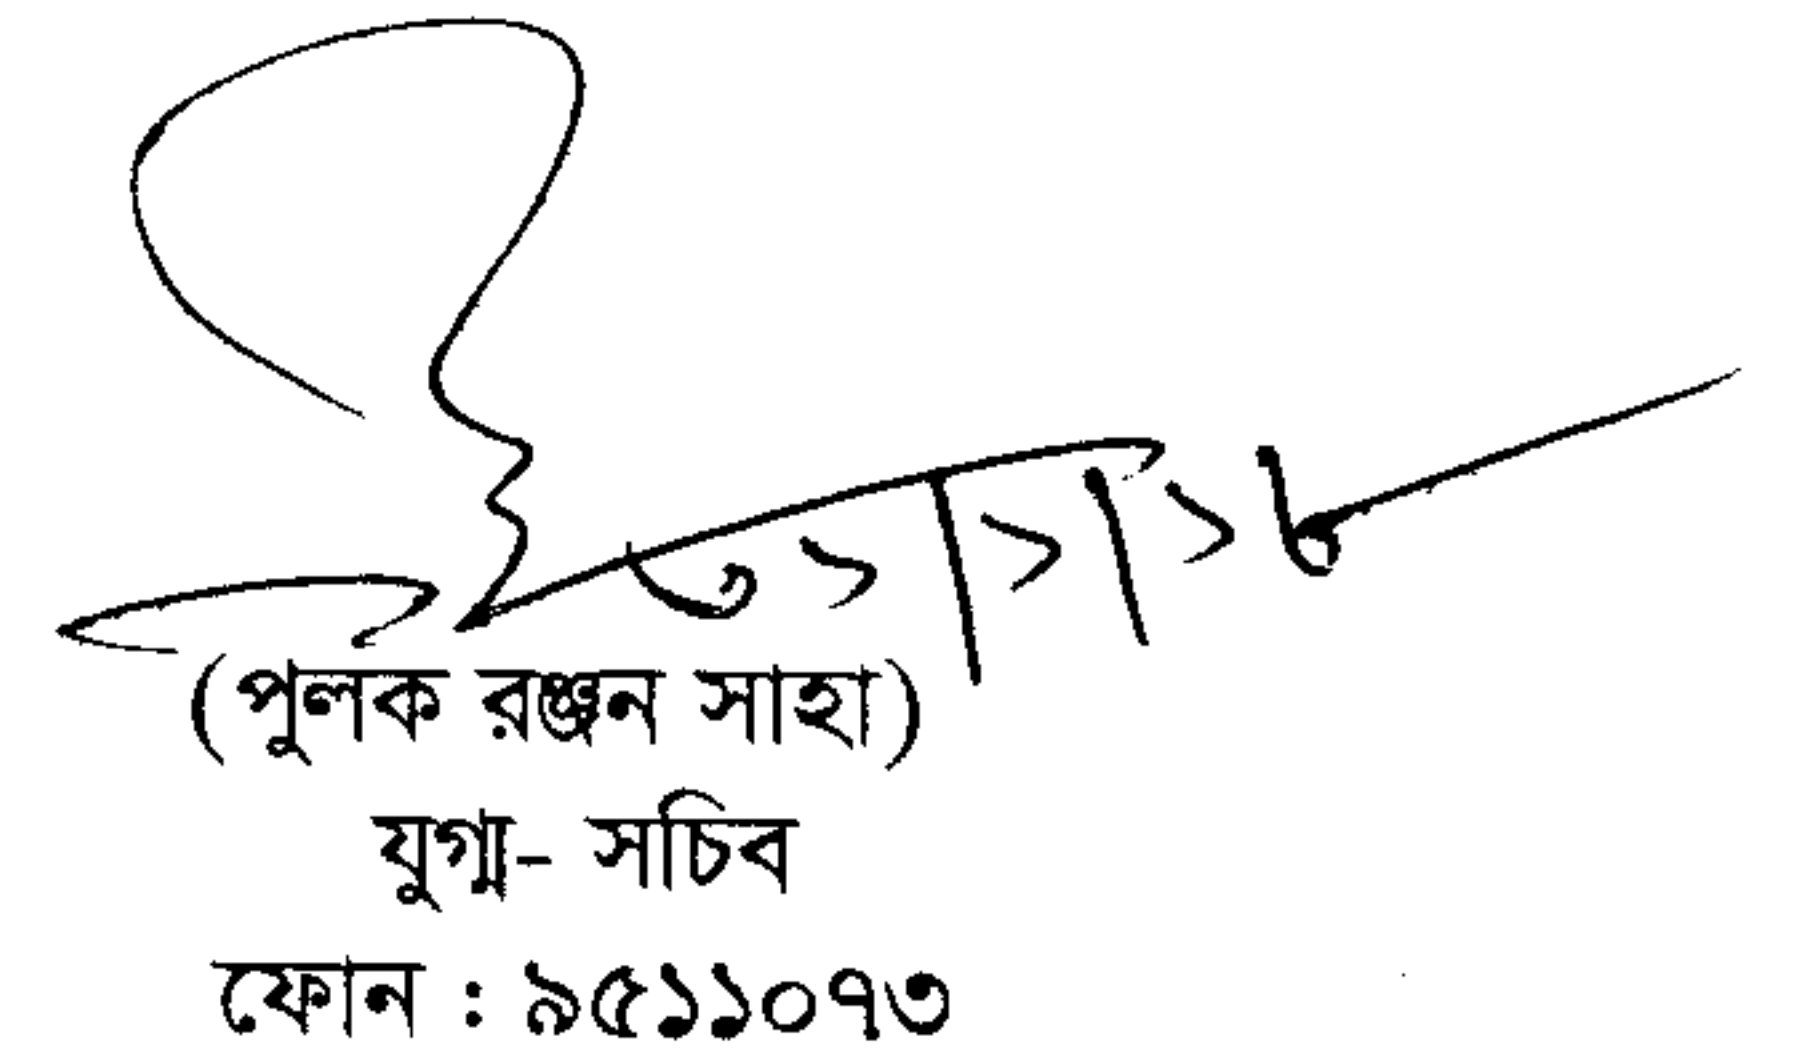 ৩১/১/১৮
(পুলক রঞ্জন সাহা)
যুগ্ম- সচিব
ফোন : ৯৫১১০৭৩